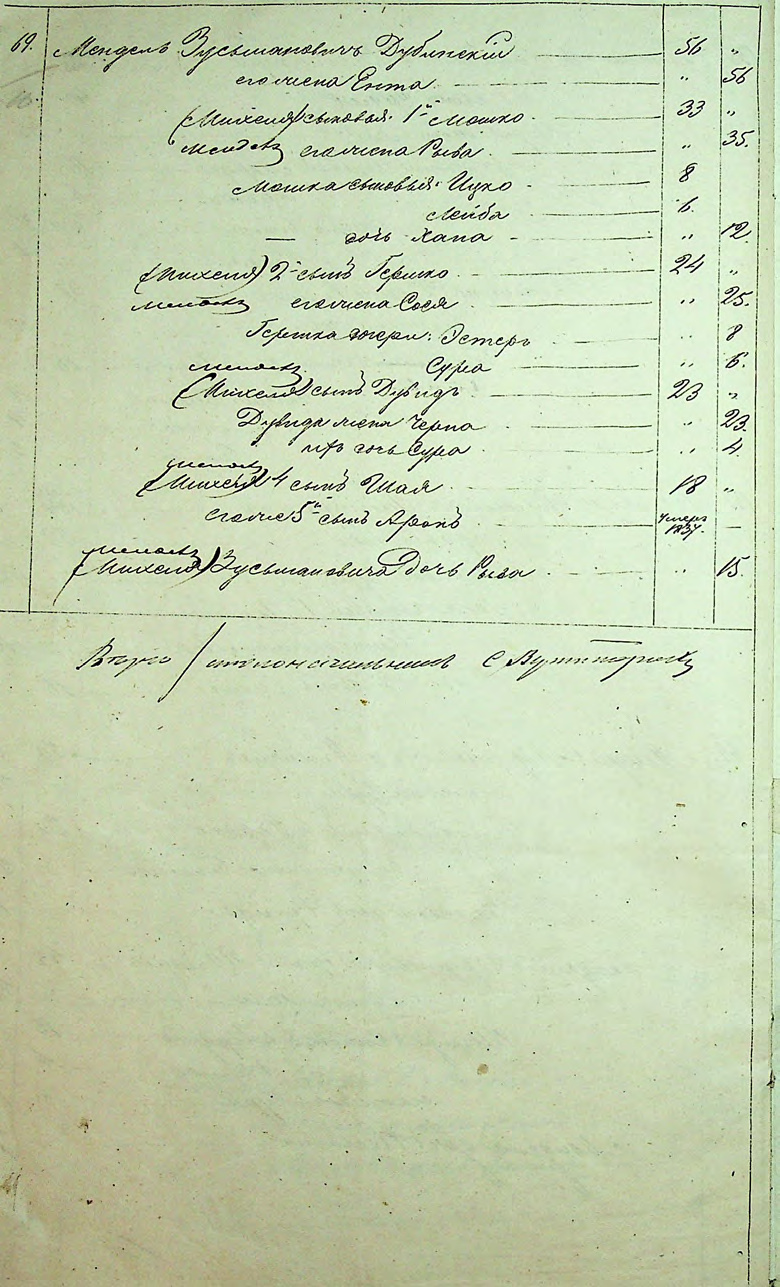 69. Мендель Зусьмановичъ Дубинскій 56 „
его жена Ента „ 56
(Михеля) сыновья: 1й Мошко 33 „
Мендель его жена Рыва „ 35.
Мошка сыновья: Ицко 8
Лейба 6.
дочь Хана „ 12
(Михеля) 2й сынъ Гершко 24 „
Мендель его жена Сося „ 25.
Гершка дочери: Эстеръ „ 8
Сура „ 6.
Мендель
(Михеля) сынъ Дувидъ 23 „
Дувида жена Черна „ 23.
ихъ дочь Сура „ 4.
Мендель
(Михеля) 4 сынъ Шая 18 „
его же 5й сынъ Аронъ умеръ 1837. —
Мендель
(Михеля) Зусьмановича дочь Рыва „ 15.
Вѣрно